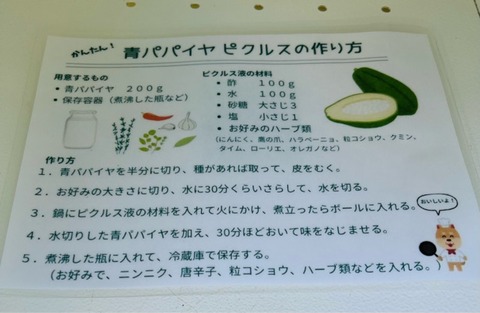 かんたん！
青パパイヤ ピクルスの作り方
用意するもの
・青パパイヤ　２００ｇ
・保存容器（煮沸した瓶など）
ピクルス液の材料
・酢　１００ｇ
・水　１００ｇ
・砂糖　大さじ３
・塩　小さじ１
・お好みのハーブ類
（にんにく、鷹の爪、ハラペーニョ、粒コショウ、クミン、
タイム、ローリエ、オレガノなど）
作り方
１．青パパイヤを半分に切り、種があれば取って、皮をむく。
２．お好みの大きさに切り、水に30分くらいさらして、水を切る。
３．鍋にピクルス液の材料を入れて火にかけ、煮立ったらボールに入れる。
４．水切りした青パパイヤを加え、30分ほどおいて味をなじませる。
５．煮沸した瓶に入れて、冷蔵庫で保存する。
（お好みで、ニンニク、唐辛子、粒コショウ、ハーブ類などを入れる。）
おいしいよ！